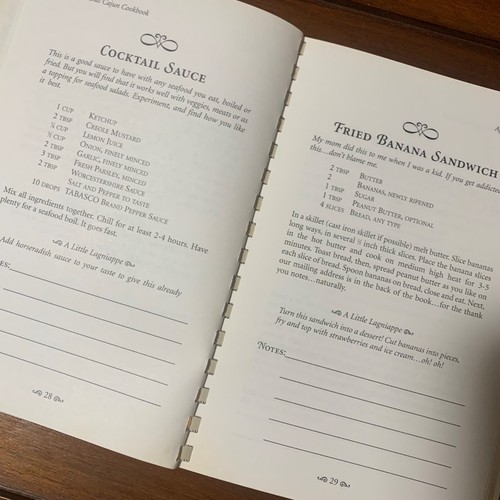 Cajun Cookbook
COCKTAIL SAUCE
This is a good sauce to have with any seafood you eat, boiled or
fried. But you will find that it works well with veggies, meats or as
a topping for seafood salads. Experiment, and find how you like
it best.
1 CUP KETCHUP
2 TBSP CREOLE MUSTARD
¼ CUP LEMON JUICE
ONION, FINELY MINCED
2 TSP GARLIC, FINELY MINCED
3 TBSP FRESH PARSLEY, MINCED
2 TBSP WORCESTERSHIRE SAUCE
SALT AND PEPPER TO TASTE
10 DROPS TABASCO BRAND PEPPER SAUCE
Mix all ingredients together. Chill for at least 2-4 hours. Have
plenty for a seafood boil. It goes fast.
A Little Lagniappe
Add horseradish sauce to your taste to give this already
28
FRIED BANANA SANDWICH
My mom did this to me when I was a kid. If you get addicted
this…don't blame me.
2 TBSP BUTTER
2 BANANAS, NEWLY RIPENED
1 TBSP SUGAR
1 TBSP PEANUT BUTTER, OPTIONAL
4 SLICES BREAD, ANY TYPE
In a skillet (cast iron skillet if possible) melt butter. Slice bananas
long ways, in several ¼ inch thick slices. Place the banana slices
in the hot butter and cook on medium high heat for 3-5
minutes. Toast bread, then, spread peanut butter as you like on
each slice of bread. Spoon bananas on bread, close and eat. Next,
our mailing address is in the back of the book…for the thank
you notes…naturally.
A Little Lagniappe
Turn this sandwich into a dessert! Cut bananas into pieces,
fry and top with strawberries and ice cream…oh! oh!
NOTES:
29